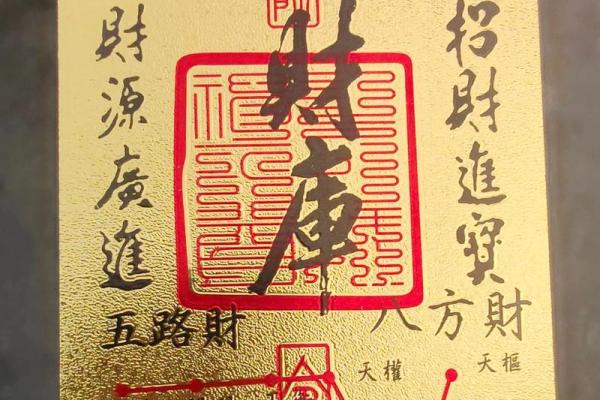 招財進寶
財庫
財源廣進
八方財
五路財
天樞
天權